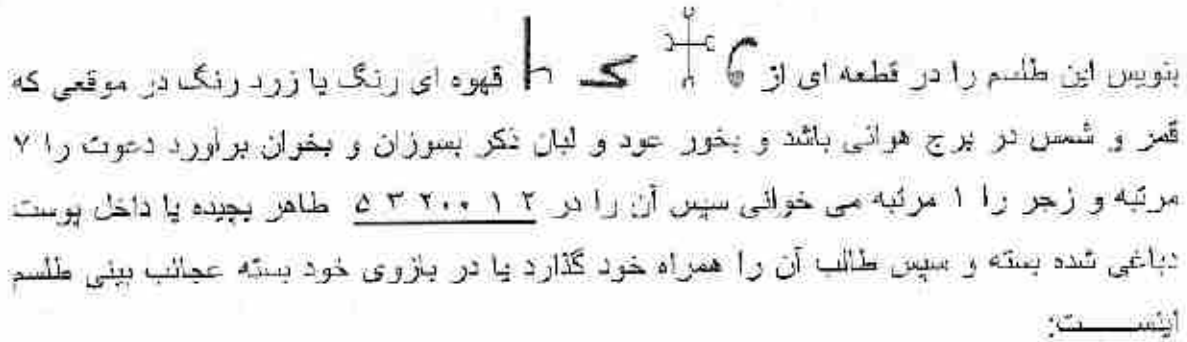 بنویس این طلسم را در قطعه ای از قهوه ای رنگ یا زرد رنگ در موقعی که
قمر و شمس در برج هوائی باشد و بخور عود و لبان ذکر بسوزان و بخوان براورد دعوت را ۷
مرتبه و زجر را ۱ مرتبه می خوانی سپس آن را در ۵ ۳ ۲۰۰ ۱ ۲ طاهر بچیده یا داخل پوست
دباغی شده بسته و سپس طالب آن را همراه خود گذارد یا در بازوی خود بسته عجائب بینی طلسم
اینست: